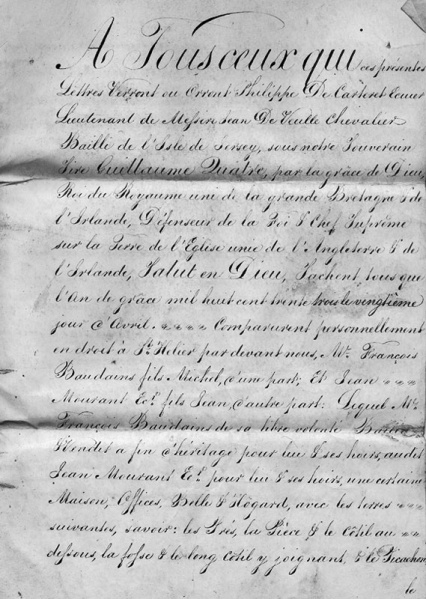 A Tous ceux qui ces présentes
Lettres Verront ou Orront Philippe De Carteret Ecuier
Lieutenant de Messire Jean De Veulle Chevalier
Baille de l'Isle de Jersey, sous notre Souverain
Sire Guillaume Quatre, par la grâce de Dieu,
Roi du Royaume uni de la grande Bretagne & de
l'Irlande, Défenseur de la Foi & Chef Suprême
sur la Terre de l'Eglise unie de l'Angleterre & de
l'Irlande, Salut en Dieu, Sachent, tous que
l'An de grâce mil huit cent trente trois le vingtième
jour d'Avril. Comparurent personnellement
en droit à St. Helier par devant nous, Mr. François
Baudains fils Michel, d'une part; Et Jean
Mourant Ec. fils Jean, d'autre part: Lequel Mr.
François Baudains de sa libre volonté Bailla &
Vendit a fin d'héritage pour lui & ses hoirs, audit
Jean Mourant Ec. pour lui & ses hoirs, une certaine
Maison, Offices, Belle & Hogard, avec les terres
suivantes, savoir: les Prés, la Pièce & le côtil au
dessous, la fosse & le long Côtil y joignant, & le Picachon
le